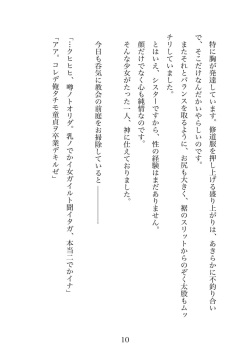 特に胸が発達しています。修道服を押し上げる盛り上がりは、あきらかに不釣り合い
で、そこだけなんだかいやらしいのです。
またそれとバランスを取るように、お尻も大きく、裾のスリットからのぞく太腿もムッ
チリしていました。
とはいえ、シスターですから、性の経験はまだありません。
顔だけでなく心も純情なのです。
そんな少女がたった一人、神に仕えておりました。
今日も呑気に教会の前庭をお掃除していると――――
「…クヒヒヒ、噂ノトオリダ。乳ノでかイ女ガイルト聞イタガ、本当ニでかイナ」
「アア。コレデ俺タチモ童貞ヲ卒業デキルゼ」
10